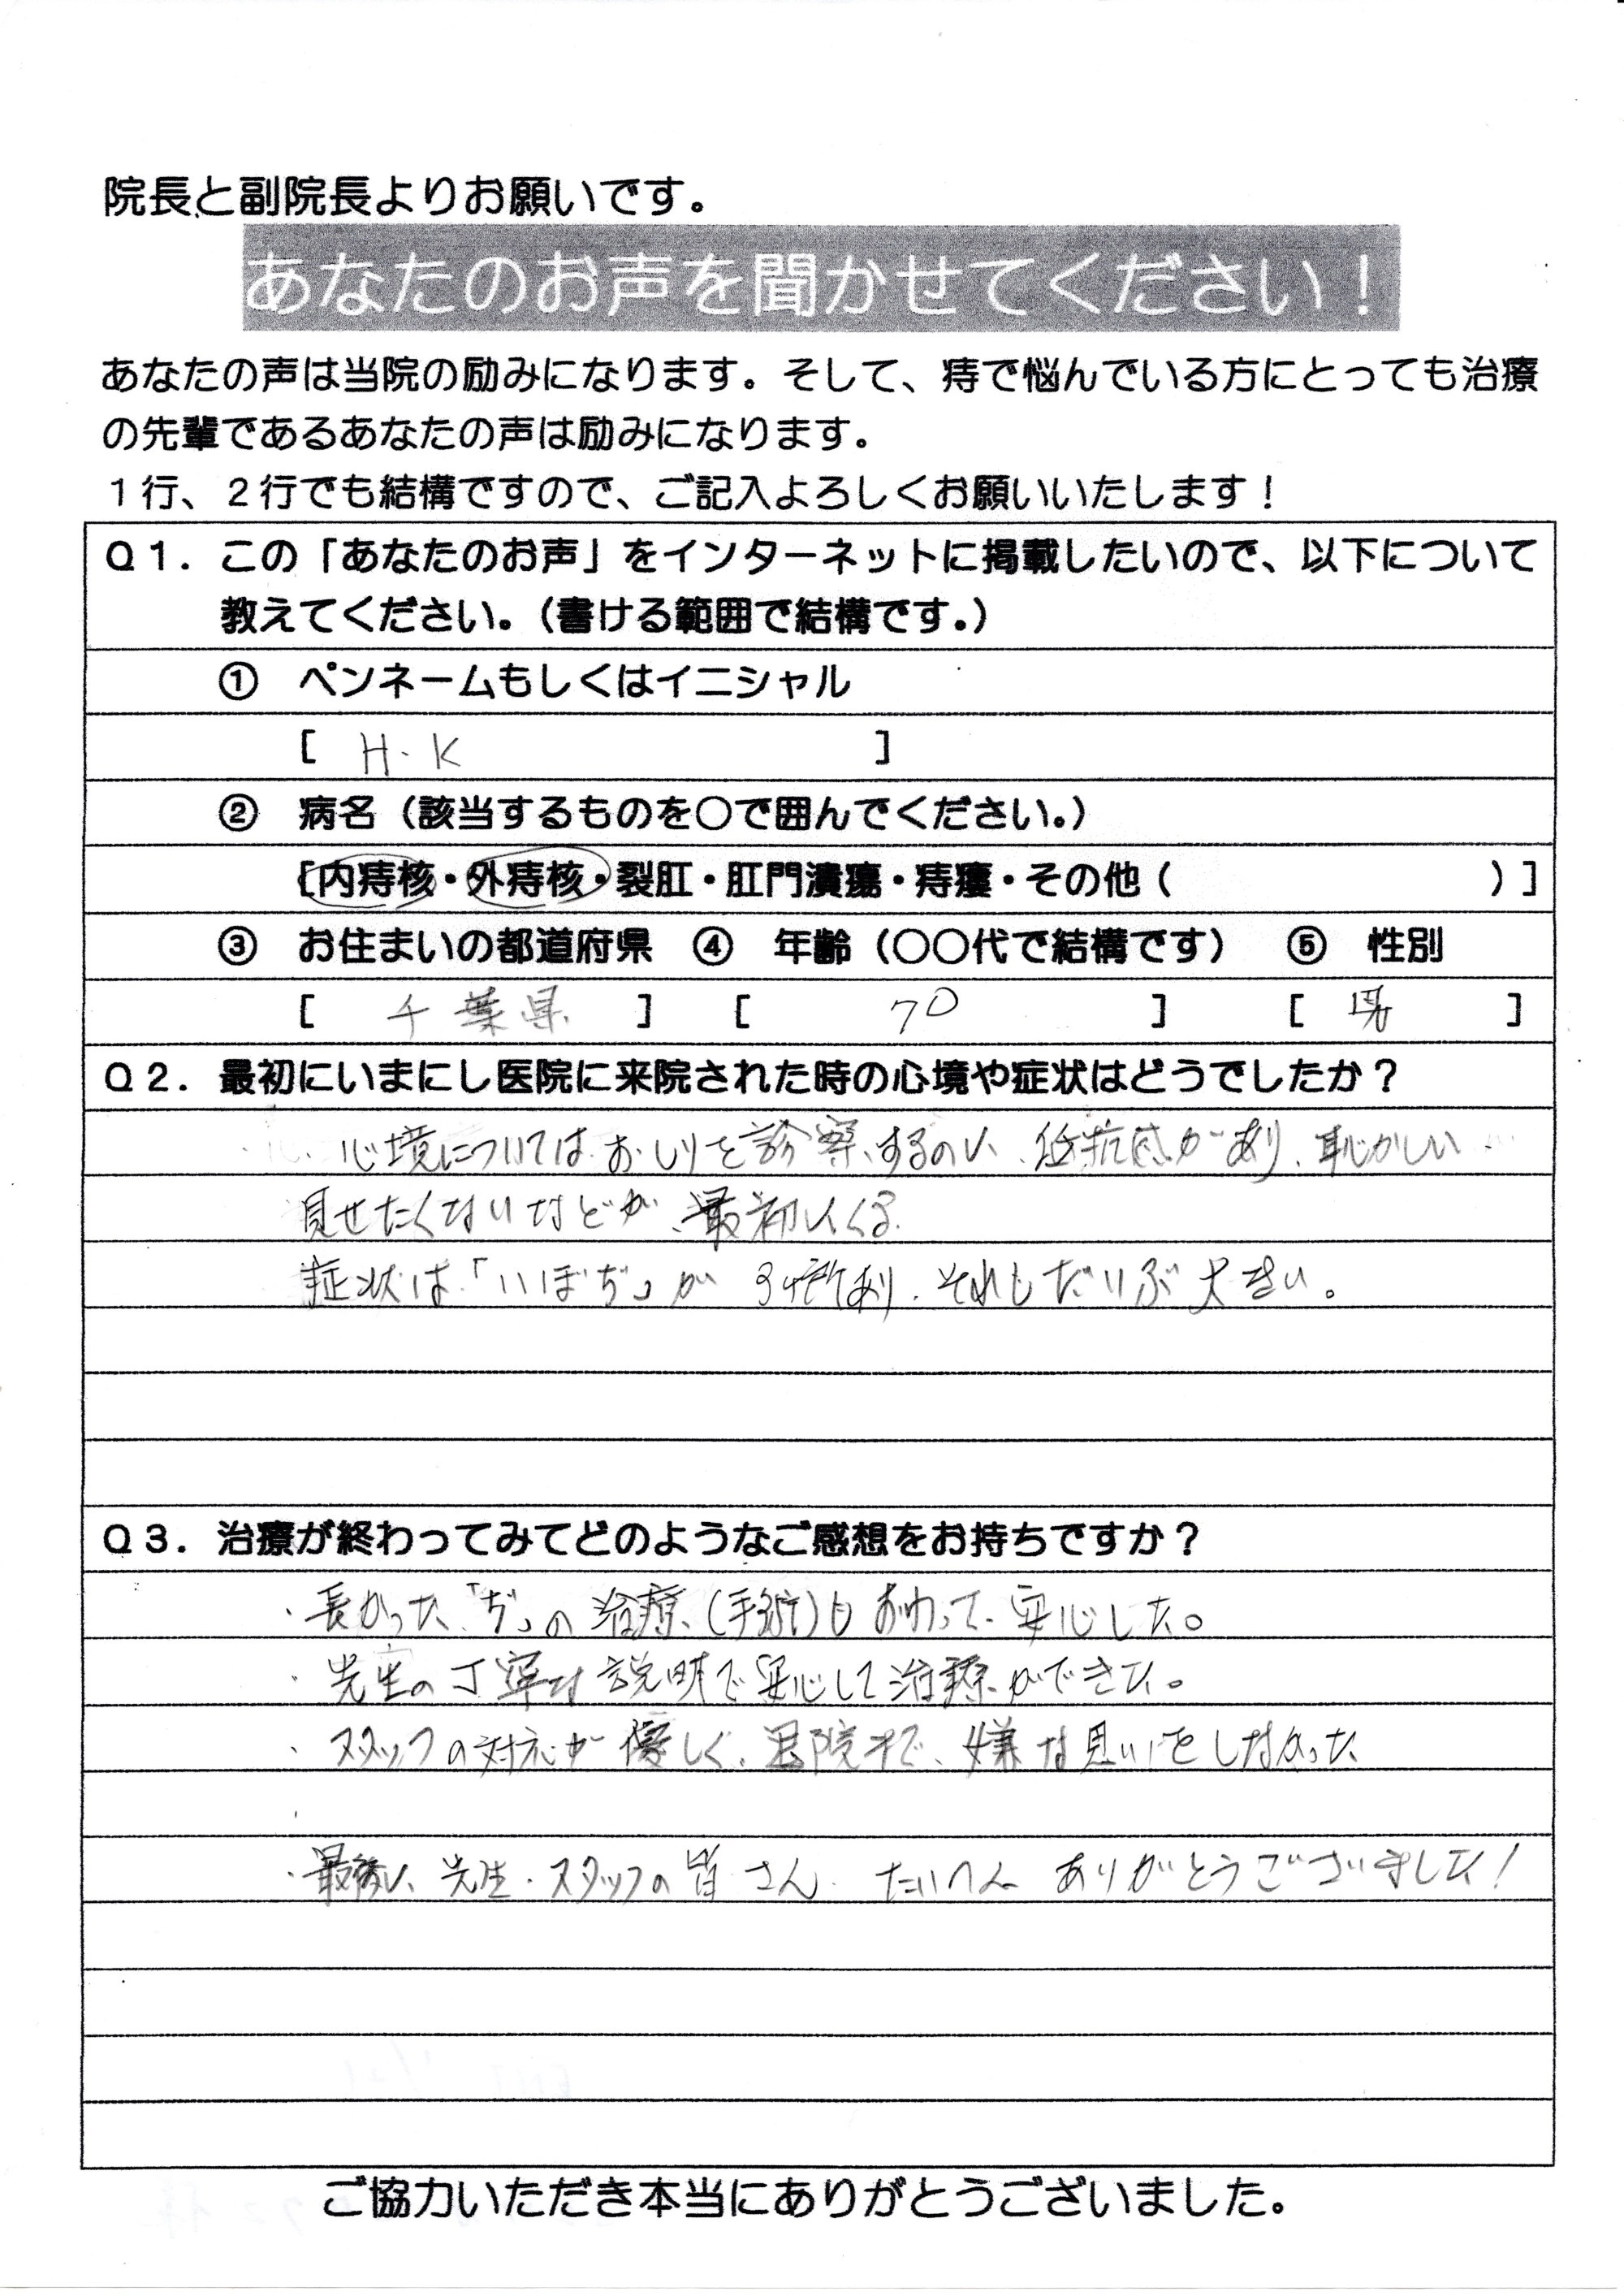 院長と副院長よりお願いです。
あなたのお声を聞かせてください！
あなたの声は当院の励みになります。そして、痔で悩んでいる方にとっても治療
の先輩であるあなたの声は励みになります。
１行、２行でも結構ですので、ご記入よろしくお願いいたします！
Ｑ１．この「あなたのお声」をインターネットに掲載したいので、以下について
教えてください。（書ける範囲で結構です。）
① ペンネームもしくはイニシャル
[ H.K ]
② 病名（該当するものを○で囲んでください。）
[内痔核・外痔核・裂肛・肛門潰瘍・痔瘻・その他（ ）]
③ お住まいの都道府県 ④ 年齢（○○代で結構です） ⑤ 性別
[ 千葉県 ] [ 70 ] [ 男 ]
Ｑ２．最初にいまにし医院に来院された時の心境や症状はどうでしたか？
心境については、おしりを診察するのに、低抗感があり、恥かしい、
見せたくないなどが、最初にくる。
症状は「いぼぢ」が3ヶ所あり、それもだいぶ大きい。
Ｑ３．治療が終わってみてどのようなご感想をお持ちですか？
・長かった「ぢ」の治療（手術）もおわって、安心した。
・先生の丁寧な説明で安心して治療ができた。
・スタッフの対応が優しく、退院まで、嫌な思いをしなかった
・最後に、先生・スタッフの皆さん、たいへんありがとうございました！
ご協力いただき本当にありがとうございました。